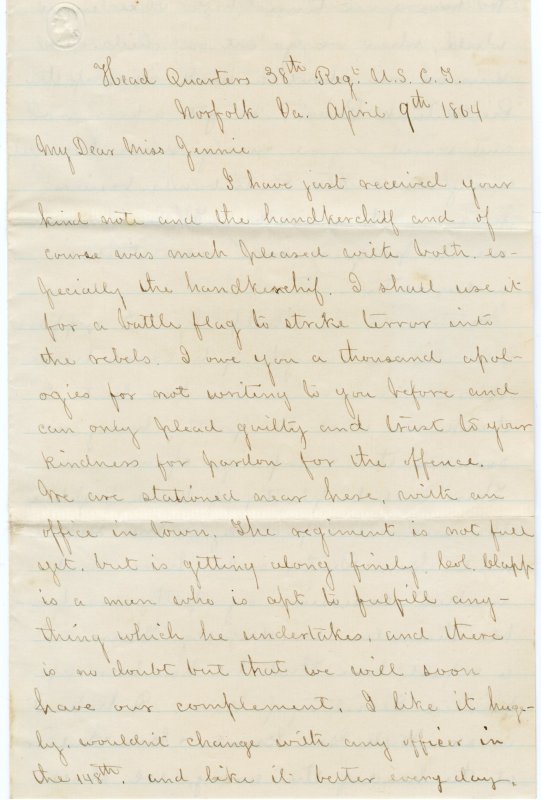 Head Quarters 38th Reg't U.S.C.T.
Norfolk Va. April 9th 1864
My Dear Miss Jennie
I have just received your
kind note and the handkerchilf and of
course was much pleased with both. es-
pecially the handkerchif. I shall use it
for a battle flag to strike terror into
the rebels. I owe you a thousand apol-
ogies for not writing to you before and
can only plead guilty and trust to your
kindness for pardon for the offence.
We are stationed near here, with an
office in town. The regiment is not full
yet. but is getting along finely. Col. Clapp
is a man who is apt to fulfill any-
thing which he undertakes. and there
is no doubt but that we will soon
have our complement. I like it huge-
ly. wouldn't change with any officer in
the 148th. and like it better every day.